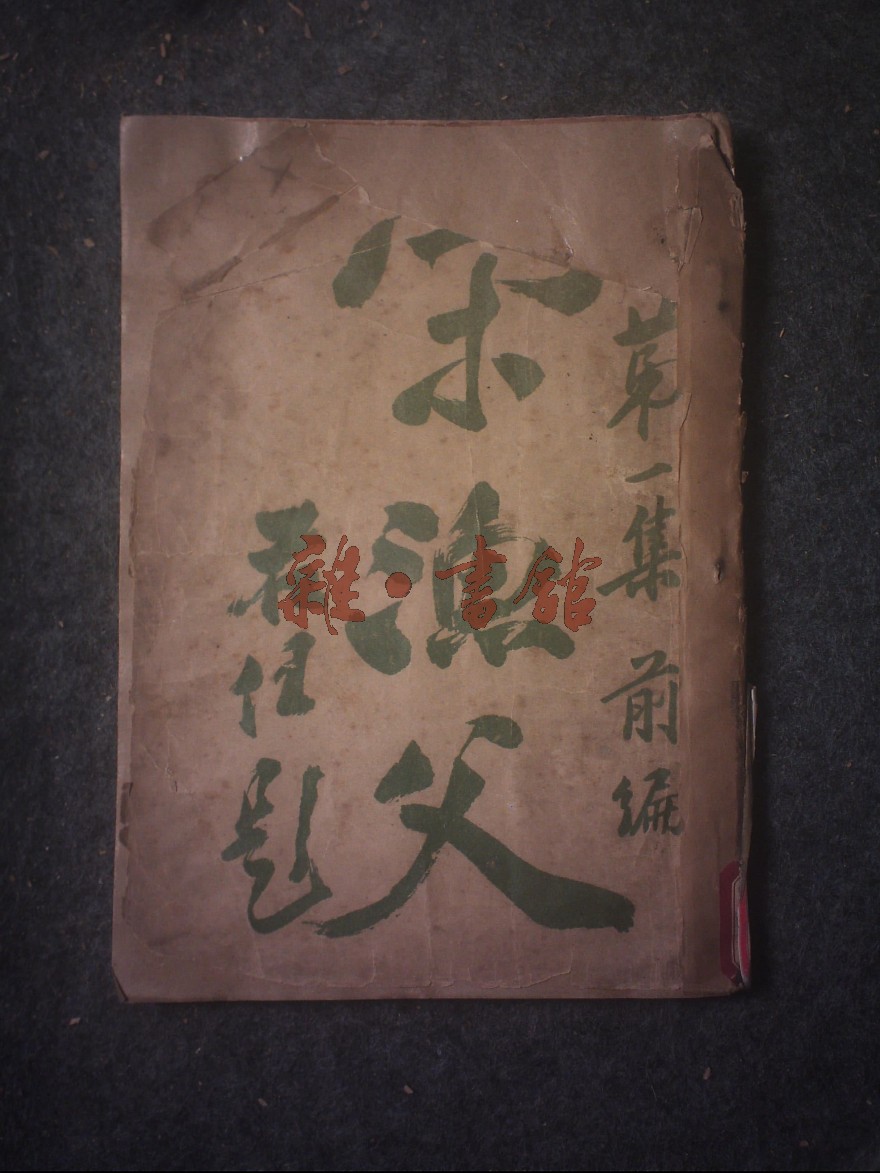 第一集 前編
宋漁父
任題
雜·書館